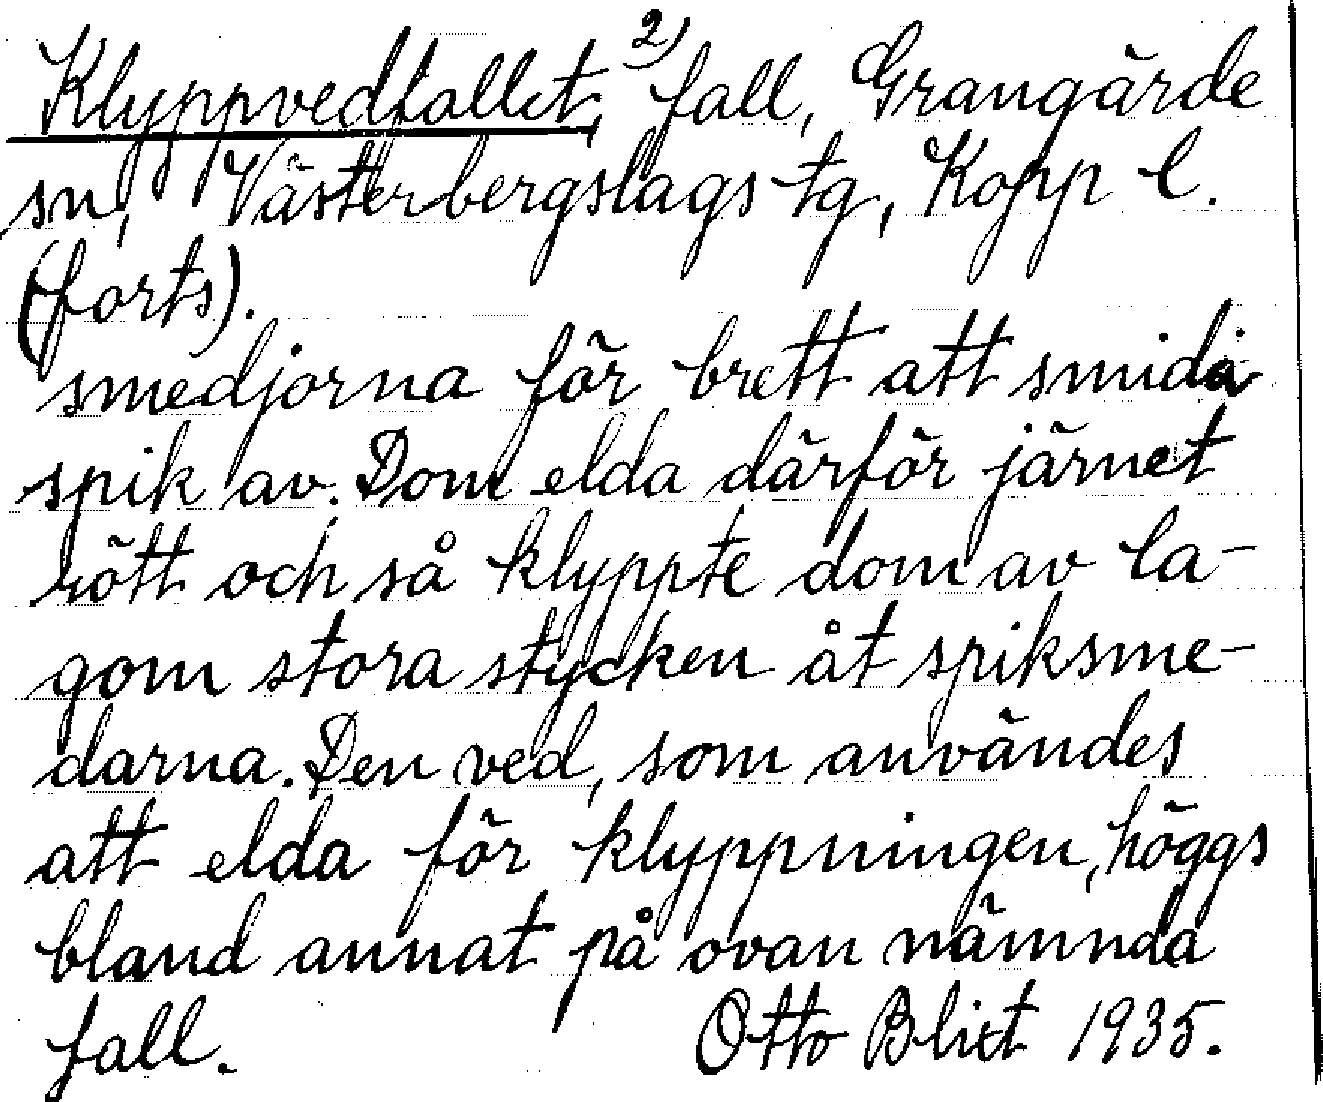 Klyppvedfallet, 2) fall, Grangärde
sn, Västerbergslags tg, Kopp l.
(forts).
smedjorna för brett att smida
spik av. Dom elda därför järnet
rött och så klyppte dom av la-
gom stora stycken åt spiksme-
darna. Den ved, som användes
att elda för klyppningen, höggs
bland annat på ovan nämnda
fall. Otto Blixt 1935.